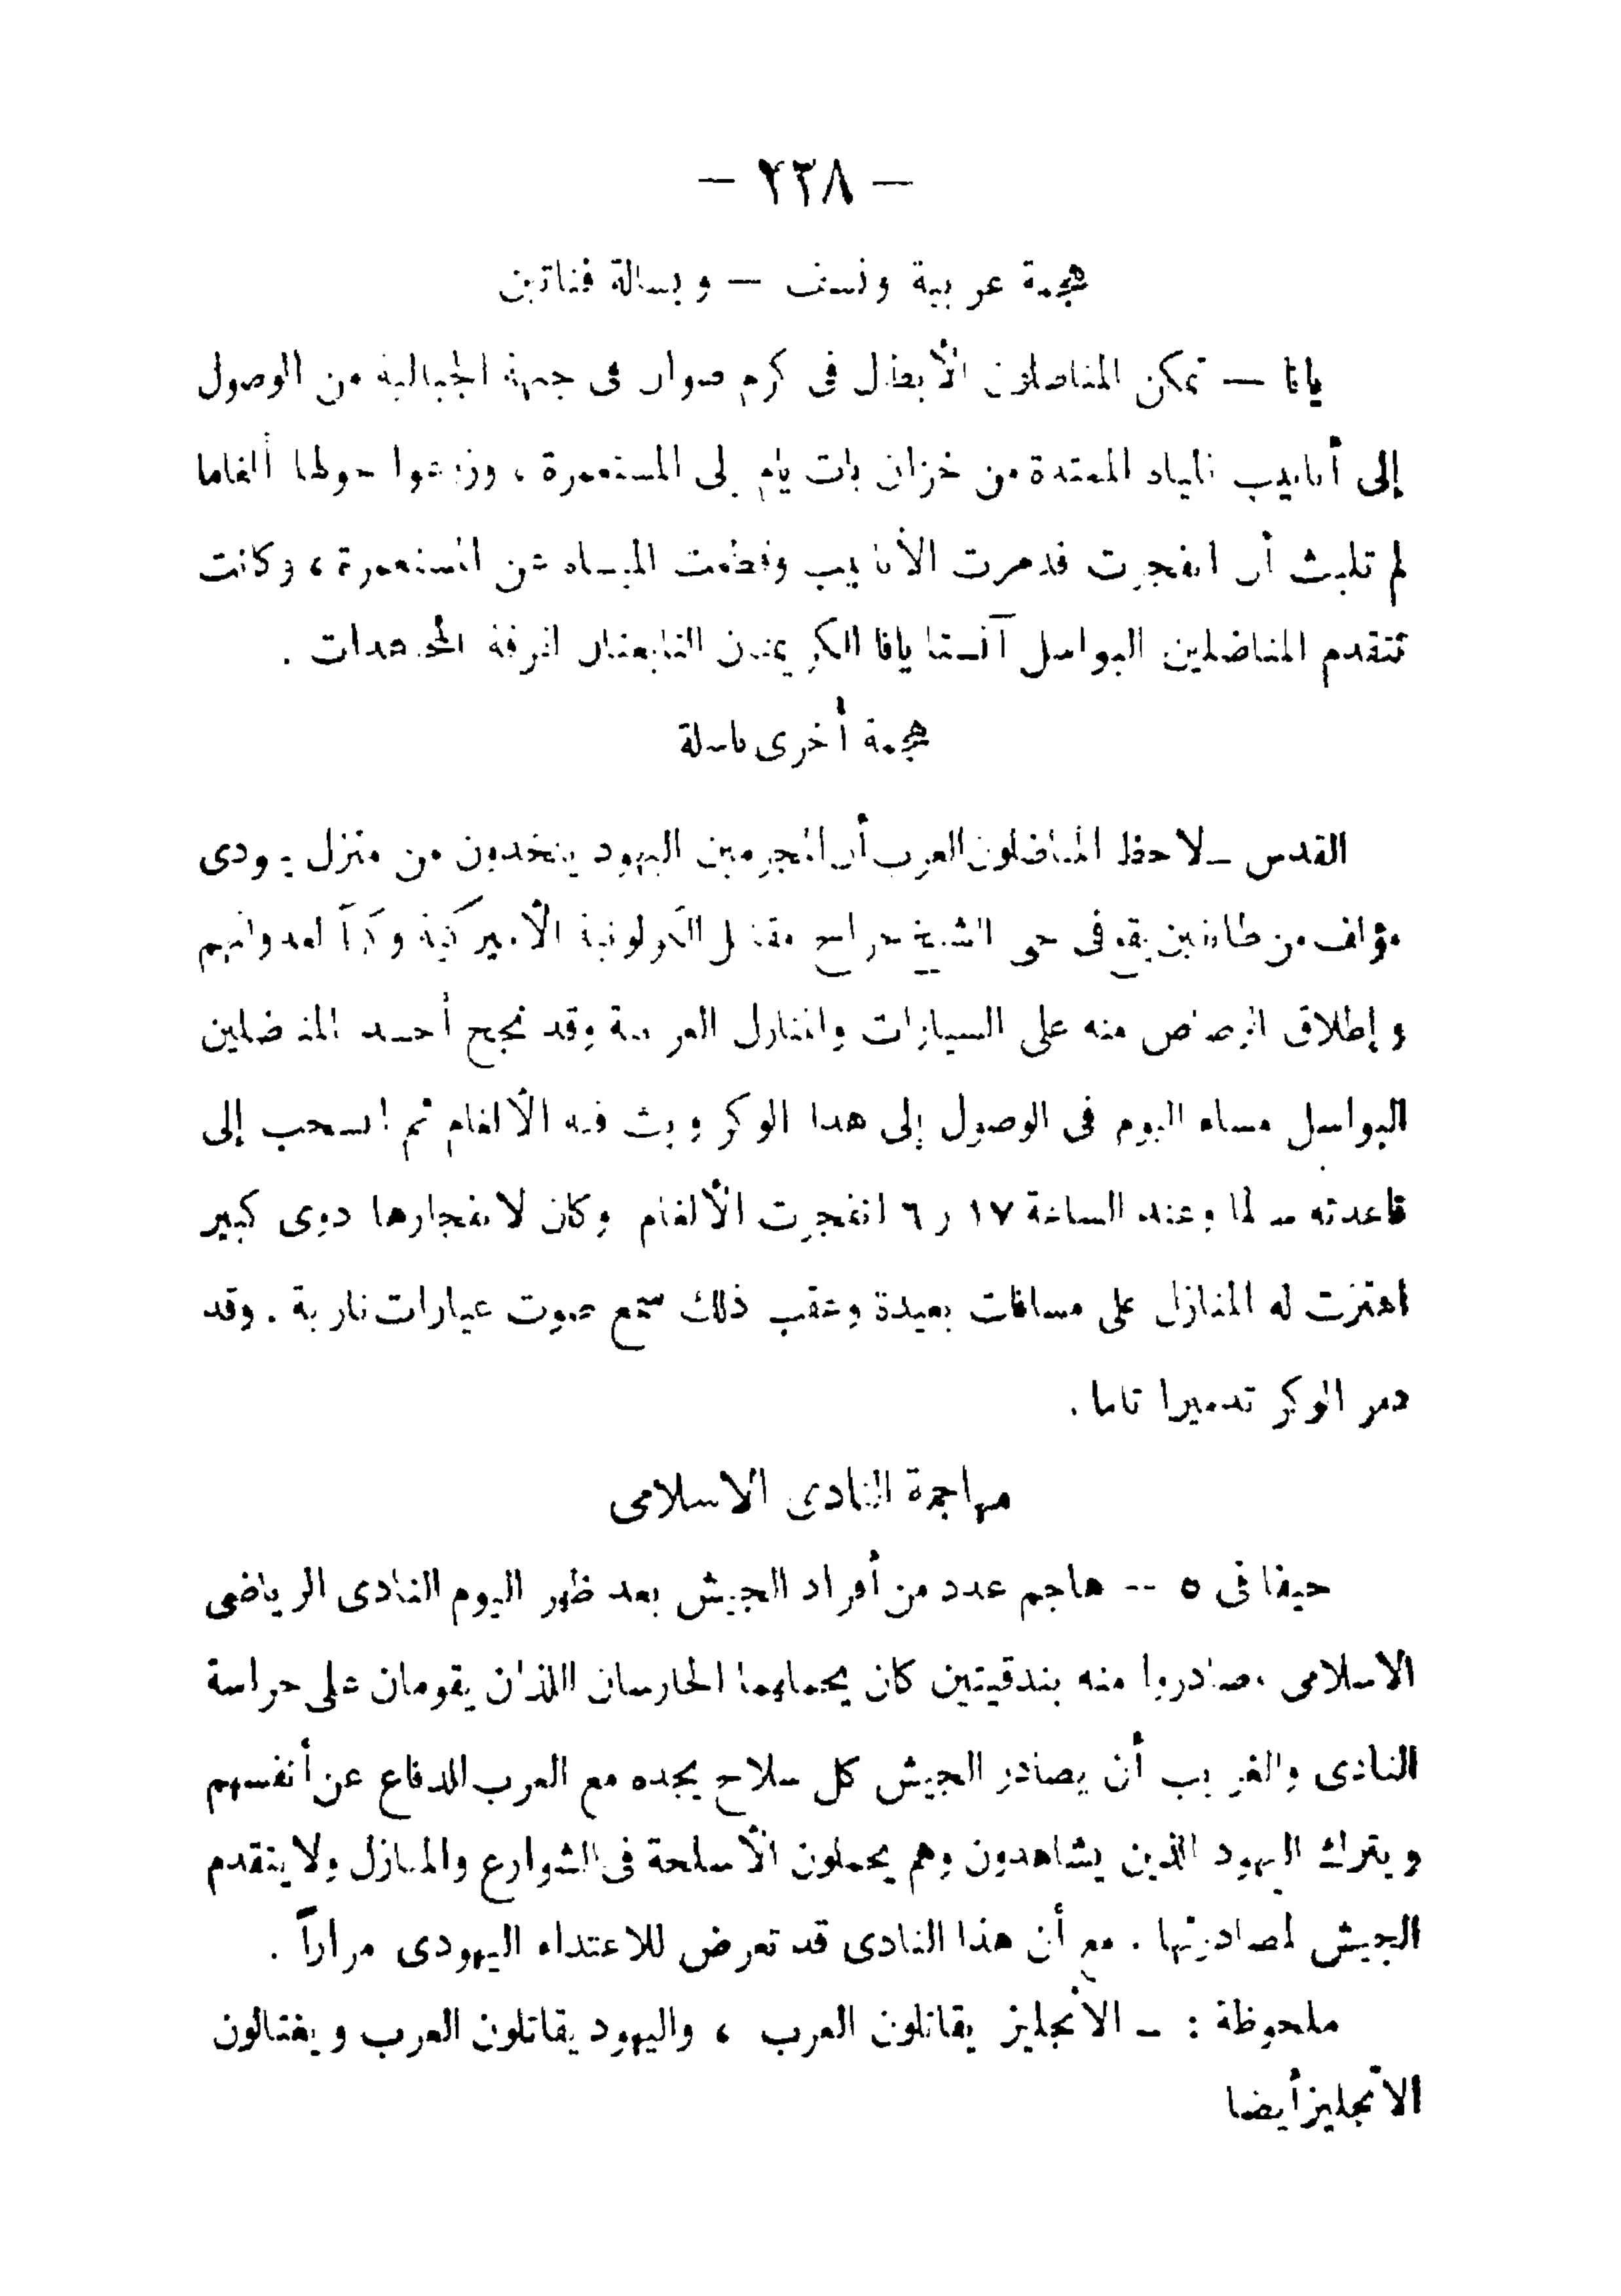 — ٢٣٨ —
هجمة عربية ونسف — وبسالة فتاتين
يافا — تمكن المناضلون الأبطال فى كرم صوان فى جبهة الجبالية من الوصول
إلى أنابيب المياه الممتدة من خزان بات يام إلى المستعمرة ، وزرعوا حولها ألغاما
لم تلبث أن انفجرت فدمرت الأنابيب وقطعت المياه عن المستعمرة ، وكانت
تتقدم المناضلين البواسل آنستا يافا الكريمتان التابعتان لفرقة المجاهدات .
هجمة أخرى باسلة
القدس — لاحظ المناضلون العرب أن المجرمين اليهود يتخذون من منزل يهودى
مؤلف من طابقين يقع فى حى الشيخ جراح مقابل الكولونية الأميركية وكراً لعدوانهم
وإطلاق الرصاص منه على السيارات والمنازل العربية وقد نجح أحد المناضلين
البواسل مساء اليوم فى الوصول إلى هذا الوكر وبث فيه الألغام ثم انسحب إلى
قاعدته سالما وعند الساعة ١٧ ر ٦ انفجرت الألغام وكان لانفجارها دوى كبير
اهتزت له المنازل على مسافات بعيدة وعقب ذلك سمع صوت عيارات نارية . وقد
دمر الوكر تدميرا تاما .
مهاجمة النادى الاسلامى
حيفا فى ٥ -- هاجم عدد من أفراد الجيش بعد ظهر اليوم النادى الرياضى
الاسلامى ، صادروا منه بندقيتين كان يحملهما الحارسان اللذان يقومان على حراسة
النادى والغريب أن يصادر الجيش كل سلاح يجده مع العرب للدفاع عن أنفسهم
ويترك اليهود الذين يشاهدون وهم يحملون الأسلحة فى الشوارع والمنازل ولا يتقدم
الجيش لمصادرتها . مع أن هذا النادى قد تعرض للاعتداء اليهودى مراراً .
ملحوظة : — الأنجليز يقاتلون العرب ، واليهود يقاتلون العرب ويغتالون
الانجليز أيضا